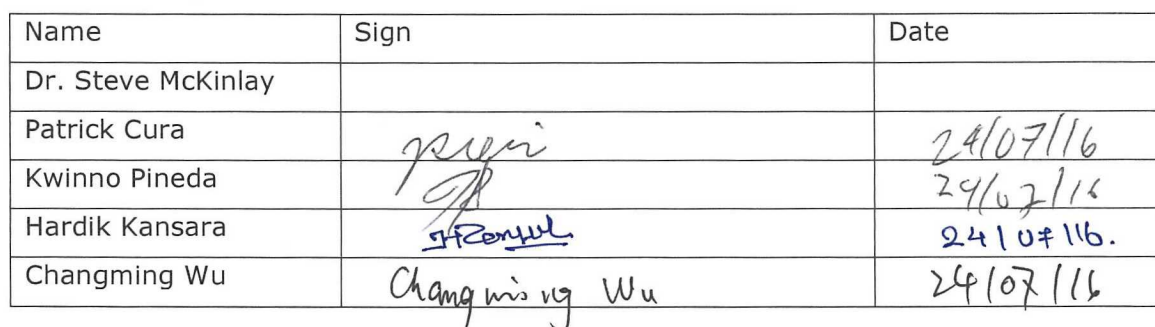 Name Sign Date
Dr. Steve McKinlay
Patrick Cura 24/07/16
Kwinno Pineda 24/07/16
Hardik Kansara 24/07/16.
Changming Wu Changming Wu 24/07/16